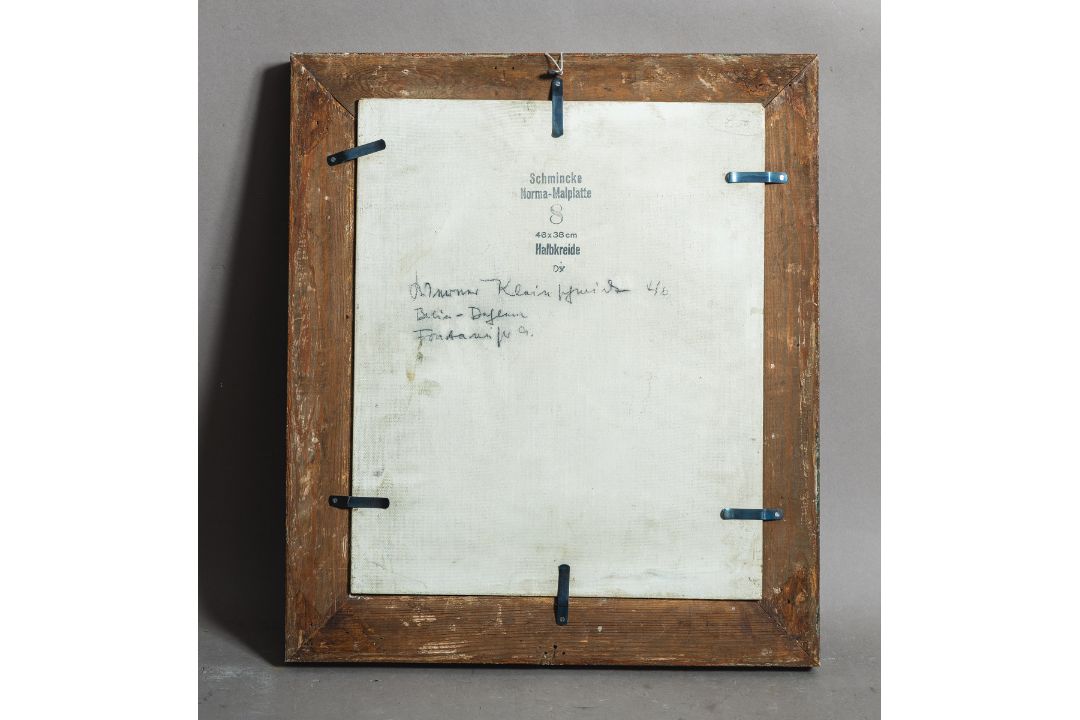 Schmincke
Norma-Malplatte
8
46x38cm
Halbkreide
Werner Kleinschmidt
Berlin-Dahlem